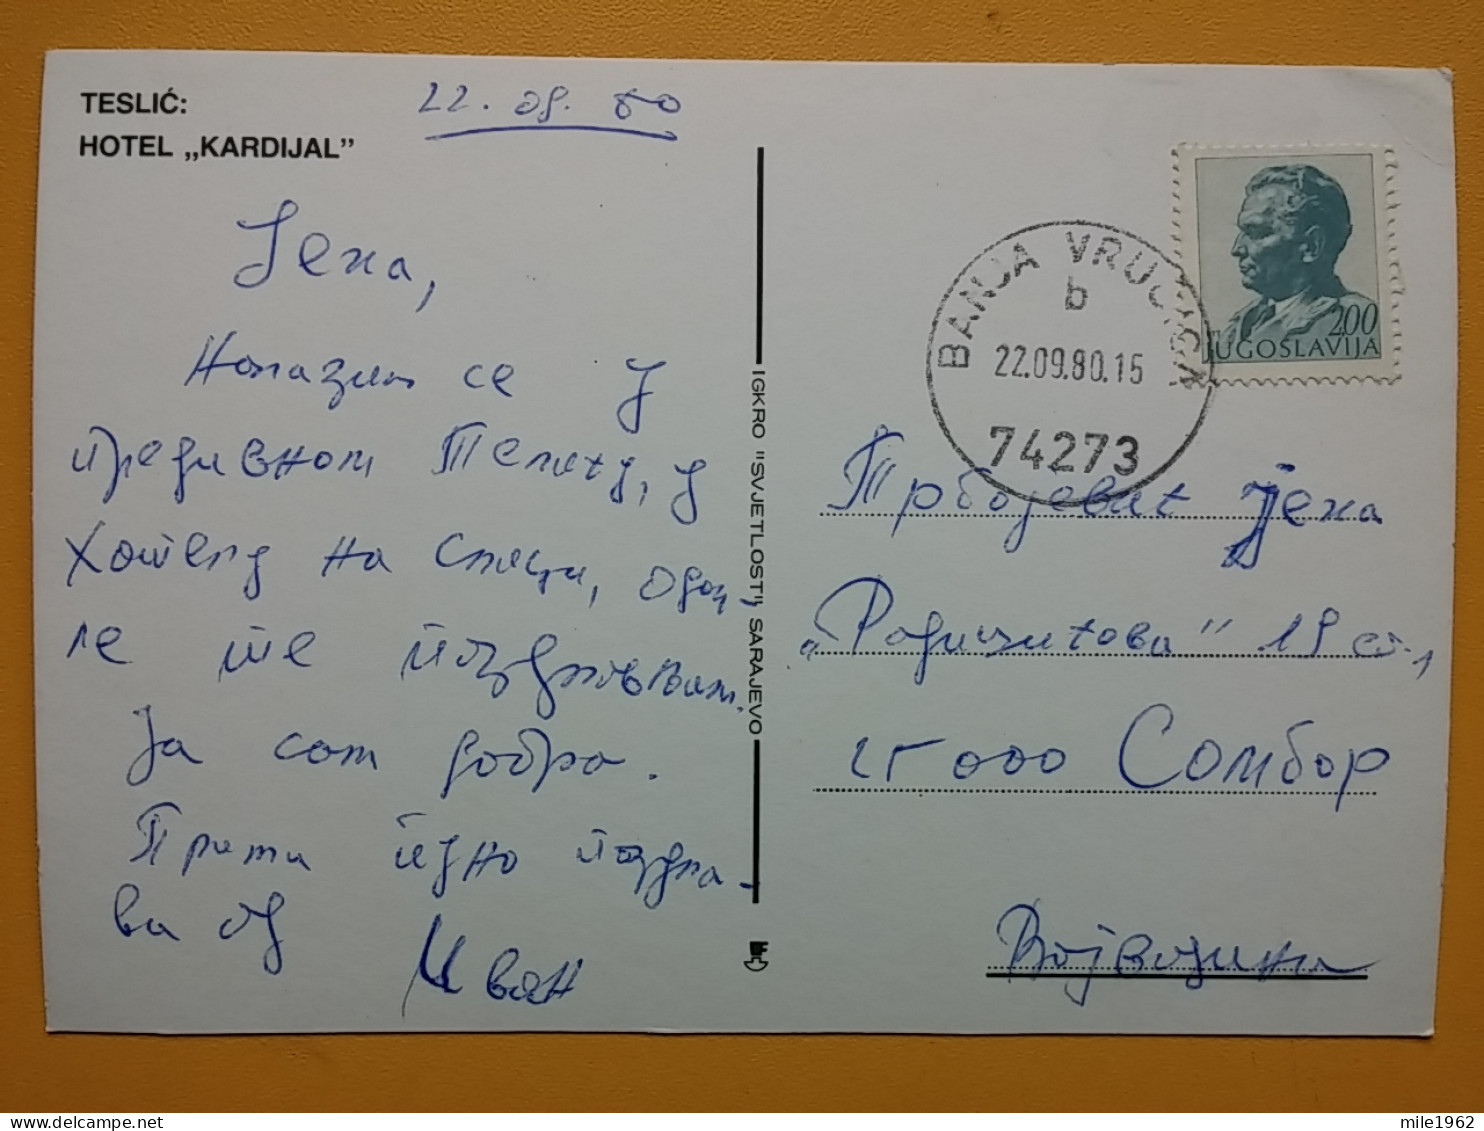 TESLIĆ:
HOTEL „KARDIJAL”
22. 09. 80
Јена,
Налазим се у
предивном Теслићу, у
хотелу на слици, одак-
ле те поздрављам.
Ја сам добро.
Прими једно поздра-
ва од
Иван
IGKRO "SVJETLOST", SARAJEVO
BANJA VRUĆICA
b
22.09.80.15
74273
200
JUGOSLAVIJA
Трбојевић Јена
19
25000 Сомбор
Војводина
mile1962